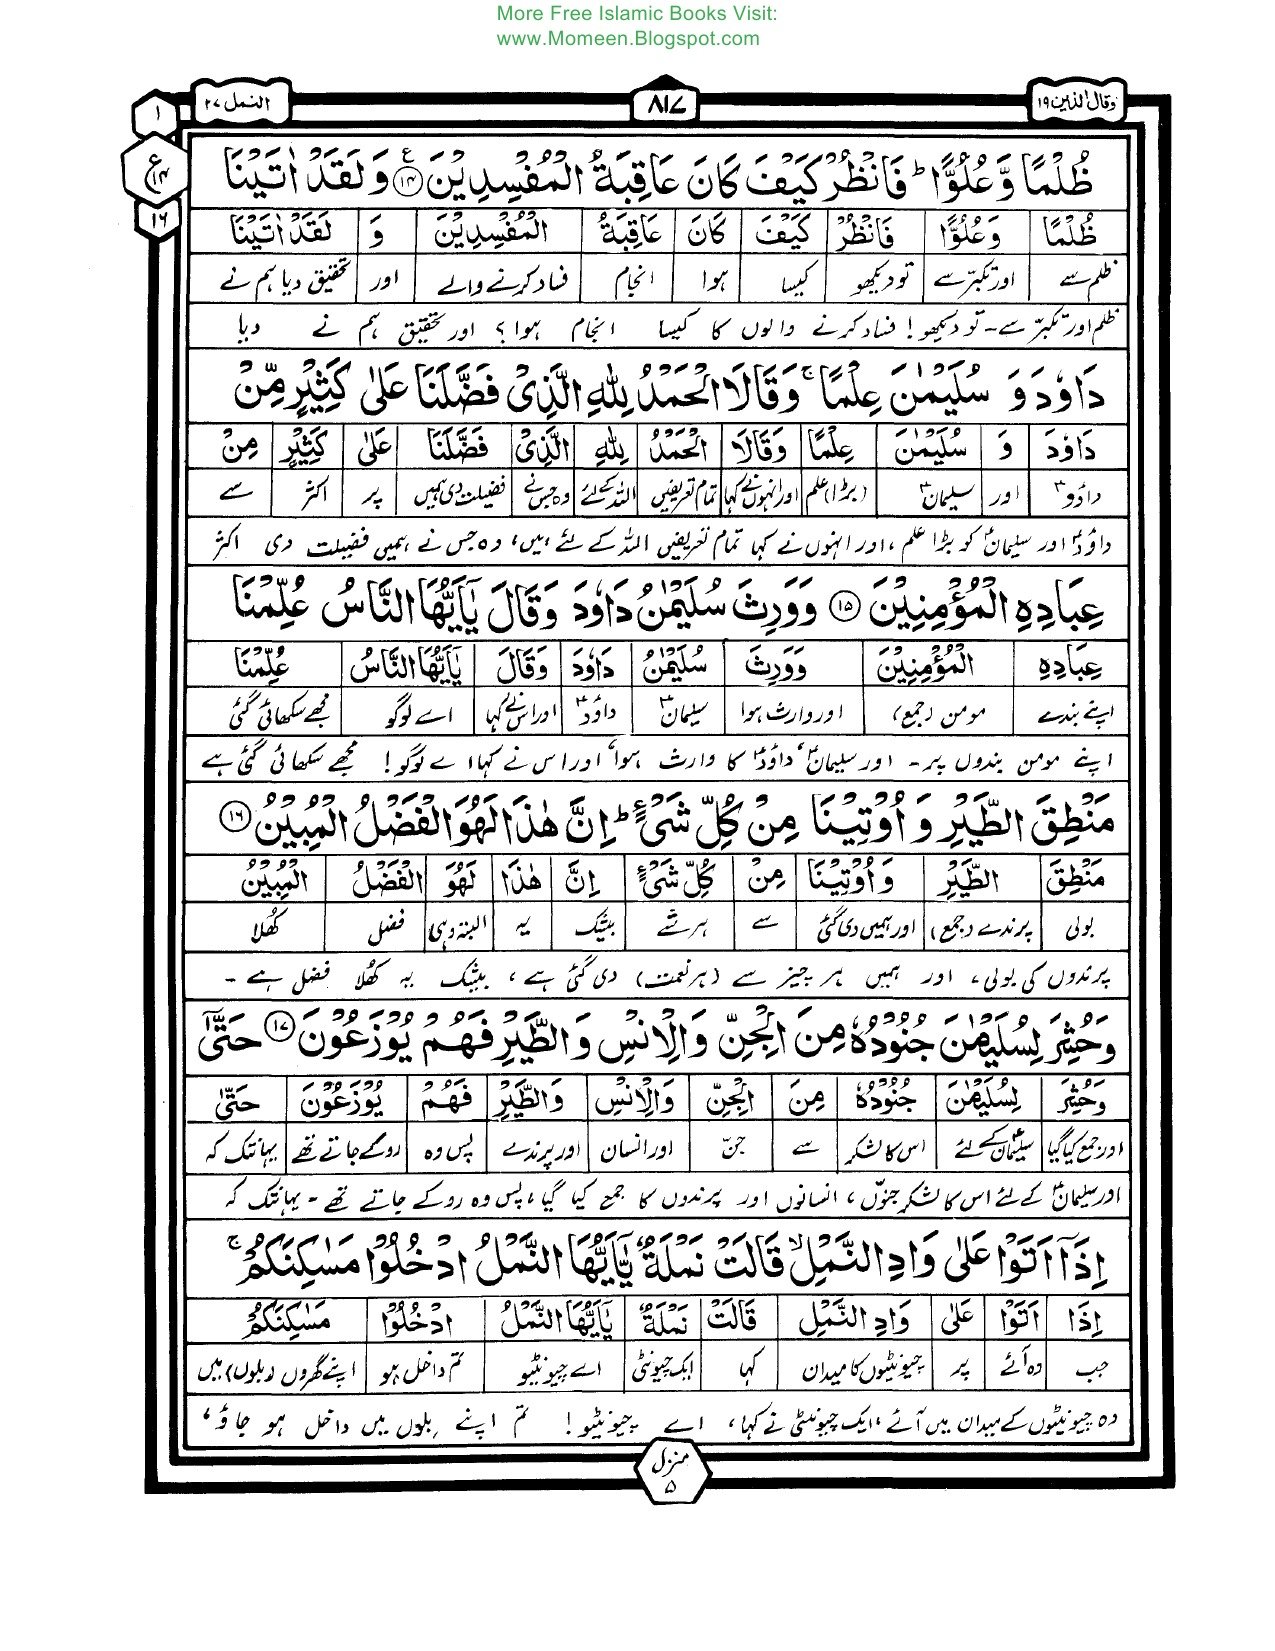 More Free Islamic Books Visit:
www.Momeen.Blogspot.com
وقال الذین ۱۹ ۸۱۷ النمل ۲۷
۱
ع ۱۴
۱۶
ظُلْمًا وَّعُلُوًّا ؕ فَانْظُرْ كَیْفَ كَانَ عَاقِبَةُ الْمُفْسِدِیْنَ ۱۴ وَ لَقَدْ اٰتَیْنَا
ظُلْمًا وَّعُلُوًّا فَانْظُرْ كَیْفَ كَانَ عَاقِبَةُ الْمُفْسِدِیْنَ وَ لَقَدْ اٰتَیْنَا
ظلم سے اور تکبّر سے تو دیکھو کیسا ہوا انجام فساد کرنے والے اور تحقیق دیا ہم نے
ظلم اور تکبّر سے۔ تو دیکھو! فساد کرنے والوں کا کیسا انجام ہوا؟ اور تحقیق ہم نے دیا
دَاوٗدَ وَ سُلَیْمٰنَ عِلْمًا ۚ وَقَالَا الْحَمْدُ لِلّٰهِ الَّذِیْ فَضَّلَنَا عَلٰى كَثِیْرٍ مِّنْ
دَاوٗدَ وَ سُلَیْمٰنَ عِلْمًا وَقَالَا الْحَمْدُ لِلّٰهِ الَّذِیْ فَضَّلَنَا عَلٰى كَثِیْرٍ مِنْ
داؤدؑ اور سلیمانؑ (بڑا) علم اور انہوں نے کہا تمام تعریفیں اللہ کے لئے وہ جس نے فضیلت دی ہمیں پر اکثر سے
داؤدؑ اور سلیمانؑ کو بڑا علم، اور انہوں نے کہا تمام تعریفیں اللہ کے لئے ہیں، وہ جس نے ہمیں فضیلت دی اکثر
عِبَادِهِ الْمُؤْمِنِیْنَ ۱۵ وَوَرِثَ سُلَیْمٰنُ دَاوٗدَ وَقَالَ یٰۤاَیُّهَا النَّاسُ عُلِّمْنَا
عِبَادِهِ الْمُؤْمِنِیْنَ وَوَرِثَ سُلَیْمٰنُ دَاوٗدَ وَقَالَ یٰۤاَیُّهَا النَّاسُ عُلِّمْنَا
اپنے بندے مومن (جمع) اور وارث ہوا سلیمانؑ داؤدؑ اور اس نے کہا اے لوگو مجھے سکھائی گئی
اپنے مومن بندوں پر۔ اور سلیمانؑ، داؤدؑ کا وارث ہوا، اور اس نے کہا اے لوگو! مجھے سکھائی گئی ہے
مَنْطِقَ الطَّیْرِ وَ اُوْتِیْنَا مِنْ كُلِّ شَیْءٍ ؕ اِنَّ هٰذَا لَهُوَ الْفَضْلُ الْمُبِیْنُ ۱۶
مَنْطِقَ الطَّیْرِ وَ اُوْتِیْنَا مِنْ كُلِّ شَیْءٍ اِنَّ هٰذَا لَهُوَ الْفَضْلُ الْمُبِیْنُ
بولی پرندے (جمع) اور ہمیں دی گئی سے ہر شے بیشک یہ البتہ وہی فضل کھُلا
پرندوں کی بولی، اور ہمیں ہر چیز سے (ہر نعمت) دی گئی ہے، بیشک یہ کھُلا فضل ہے۔
وَحُشِرَ لِسُلَیْمٰنَ جُنُوْدُهٗ مِنَ الْجِنِّ وَالْاِنْسِ وَالطَّیْرِ فَهُمْ یُوْزَعُوْنَ ۱۷ حَتّٰۤى
وَحُشِرَ لِسُلَیْمٰنَ جُنُوْدُهٗ مِنَ الْجِنِّ وَالْاِنْسِ وَالطَّیْرِ فَهُمْ یُوْزَعُوْنَ حَتّٰى
اور جمع کیا گیا سلیمانؑ کے لئے اس کا لشکر سے جنّ اور انسان اور پرندے پس وہ روکے جاتے تھے یہانتک کہ
اور سلیمانؑ کے لئے اس کا لشکر جنّوں، انسانوں اور پرندوں کا جمع کیا گیا، پس وہ روکے جاتے تھے۔ یہانتک کہ
اِذَاۤ اَتَوْا عَلٰى وَادِ النَّمْلِ ۙ قَالَتْ نَمْلَةٌ یّٰۤاَیُّهَا النَّمْلُ ادْخُلُوْا مَسٰكِنَكُمْ ۚ
اِذَا اَتَوْا عَلٰى وَادِ النَّمْلِ قَالَتْ نَمْلَةٌ یٰۤاَیُّهَا النَّمْلُ ادْخُلُوْا مَسٰكِنَكُمْ
جب وہ آئے پر چیونٹیوں کا میدان کہا ایک چیونٹی اے چیونٹیو تم داخل ہو اپنے گھروں (بلوں) میں
وہ چیونٹیوں کے میدان میں آئے، ایک چیونٹی نے کہا، اے چیونٹیو! تم اپنے بلوں میں داخل ہو جاؤ،
منزل ۵